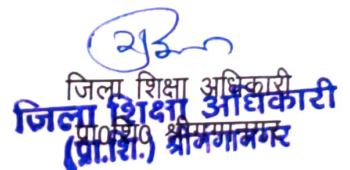 जिला शिक्षा अधिकारी
जिला शिक्षा अधिकारी
प्रा०शि० श्रीगंगानगर
(प्रा.शि.) श्रीगंगानगर